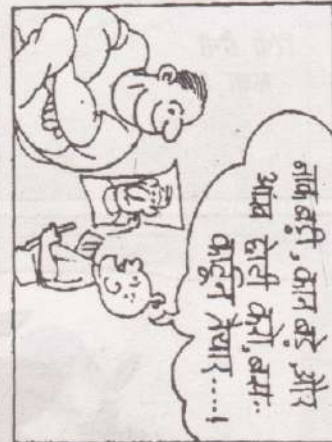 नाक बड़ी, कान बड़े, और
आंख छोटी करो, बस..
कार्टून तैयार....!